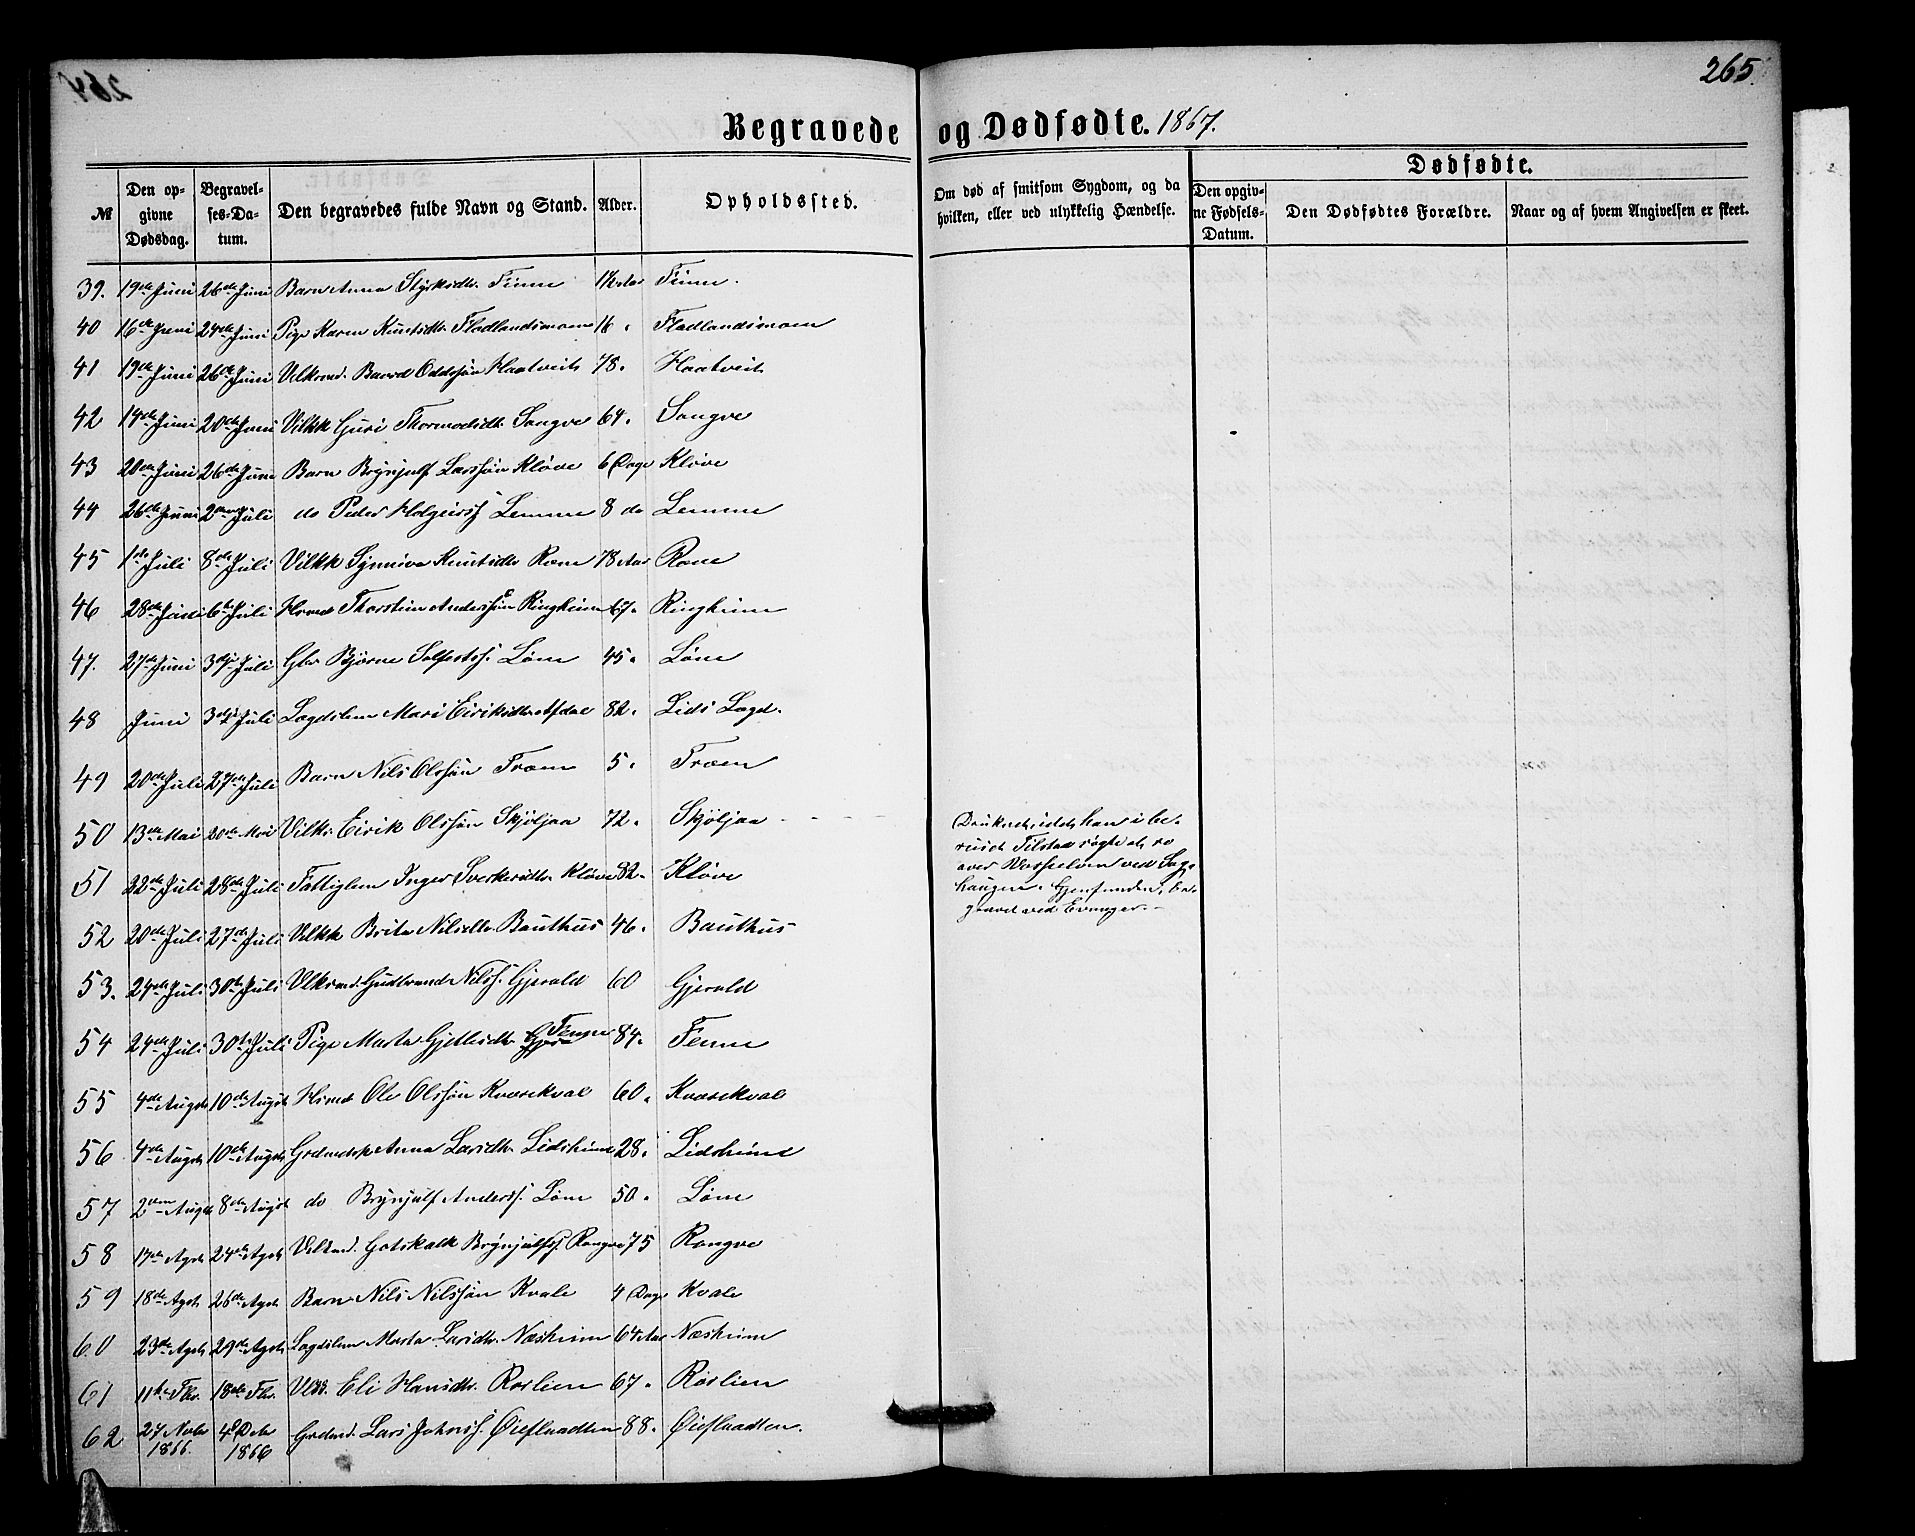 265.
264
Begravede og Dødfødte. 1867.
№
Den opgivne Dødsdag.
Begravelses-Datum.
Den begravedes fulde Navn og Stand.
Alder.
Opholdssted.
Om død af smitsom Sygdom, og da hvilken, eller ved ulykkelig Hændelse.
Dødfødte.
Den opgivne Fødsels-Datum.
Den Dødfødtes Forældre.
Naar og af hvem Angivelsen er skeet.
39. 19de Juni 26de Juni Barn Anna Styrksdtr. Finne 1½ Aar Finne.
40 16de Juni 24de Juni Pige Karen Knutsdtr Fladlandsmoen 16. Fladlandsmoen
41 19de Juni 26de Juni Vilkmd. Baard Oddssøn Haatveit 78. Haatveit
42 14de Juni 20de Juni Vilkk Guri Thormodsdtr. Songve 64. Songve
43 20de Juni 26de Juni Barn Brynjulf Larssøn Kløve 6 Dage Kløve
44 26de Juni 2den Juli do Peder Holgeirss. Lemme 8 do Lemme
45 1ste Juli 8de Juli Vilkk Synniva Knutsdtr Rone 78 Aar Rone
46 28de Juni 6te Juli Hsmd Thorstein Anderssøn Ringheim 67. Ringheim
47. 27de Juni 3die Juli Gbr Bjørne Solfestss. Løne 45. Løne
48 Juni 3die Juli Lægdslem Mari Eiriksdtr Afdal 82. Lids Lægd.
49 20de Juli 27de Juli Barn Nils Olssøn Træen 5. Træen
50 13de Mai 20de Mai Vilkr. Eirik Olssøn Skjøljaa 72. Skjøljaa
Druknet, idet han i be-
ruset Tilstand søgte at ro
over Vosseelven ved Sag-
haugen. Gjenfunden, be-
gravet ved Evanger.
51 22de Juli 28de Juli Fattiglem Inger Sverkesdtr Kløve 82. Kløve
52 20de Juli 27de Juli Vilkk Brita Nilsdtr. Bauthus 46. Bauthus
53. 24de Juli 30te Juli Vlkmd. Gudbrand Nilss. Gjerald 60 Gjerald
54 24de Juli 30te Juli Pige Marta Gjetlesdtr. Fenne 84. Fenne
55 4de Augst 10de Augst Hsmd Ole Olssøn Kvarekval 60. Kvarekval
56 4de Augst 10de Augst Grdmdsk Anna Larsdtr. Lidsheim 28. Lidsheim
57 2den Augst 8de Augst do Brynjulf Anderss. Løne 50. Løne
58 17de Agst 24de Agst Vilkmd. Gotskalk Brynjulfss. Rongve 75 Rongve
59 18de Agst 26de Agst Barn Nils Nilssøn Kvale 4 Dage Kvale
60 23de Agst 29de Agst Lægdslem Marta Larsdtr. Næsheim 64 Aar Næsheim
61 11te 18de Eli Hansdtr. Roslien 67. Roslien
62 27 Novbr 1866. 4de Debr 1866 Grdmd. Lars Johnss. Øieflaadten 88. Øieflaadten.